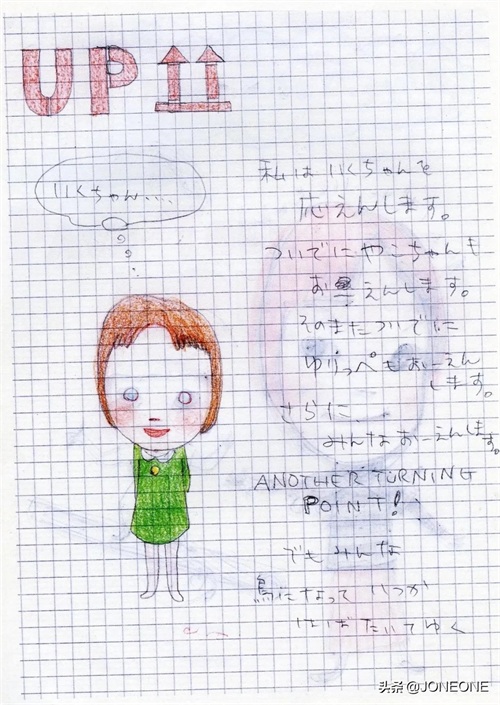 UP
いくちゃん....
私はいくちゃんを
応えんします。
ついでにやこちゃんも
おーえんします。
そのまたついでに
ゆりっぺもおーえん
します。
さらに
みんなおーえんします。
ANOTHER TURNING
POINT!
でもみんな
鳥になって いつか
はばたいてゆく
头条 @JONEONE